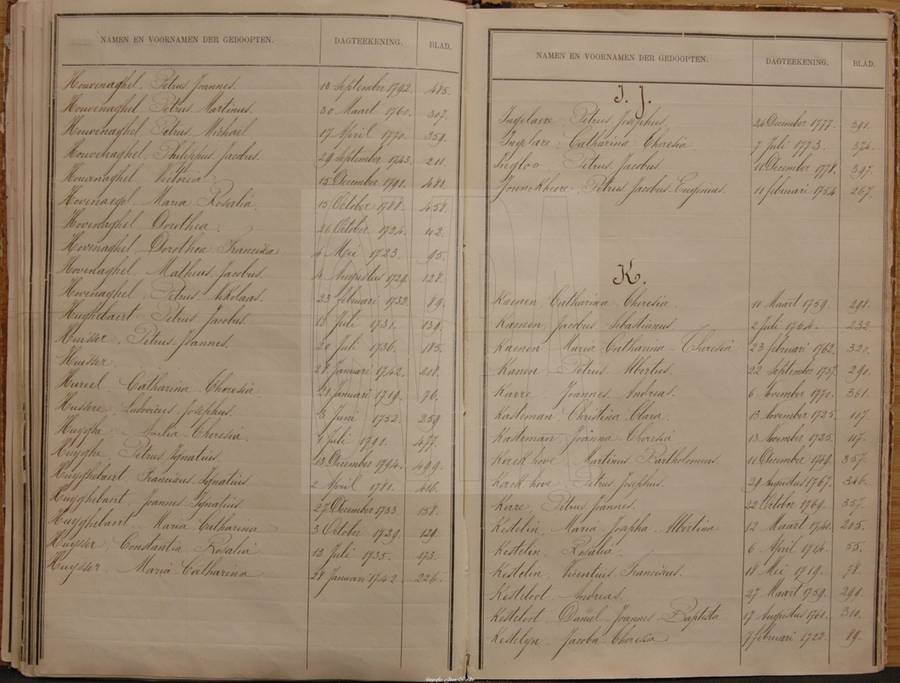 NAMEN EN VOORNAMEN DER GEDOOPTEN. DAGTEEKENING. BLAD.
Houvenaghel, Petrus Joannes. 13 September 1792. 485.
Houvenaghel Petrus Martinus. 30 Maart 1760. 307.
Houvenaghel Petrus Michael 17 April 1770. 359.
Houvenaghel Philippus Jacobus. 29 September 1743. 211.
Houvenaghel Victoria 15 December 1791. 481.
Hovenaegel Maria Rosalia. 15 October 1788. 458.
Hovenaghel Dorothea 26 October 1724. 112.
Hovenaghel Dorothea Francisca 4 Mei 1723. 95.
Hovenaghel Matheus Jacobus. 4 Augustus 1729. 128.
Hovenaghel Petrus Nikolaas. 23 februari 1732. 89.
Hughebaert Petrus Jacobus 18 Juli 1731. 139.
Huisser Petrus Joannes. 20 Juli 1736. 185.
Huisser 28 Januari 1742. 208.
Hureel Catharina Theresia 21 Januari 1719. 76.
Hussere Ludovicus Josephus. 3 Juni 1752. 259.
Huyghe Amelia Theresia 6 Juli 1791. 477.
Huyghe, Petrus Ignatius. 13 December 1794. 499.
Huyghebaert Franciscus Ignatius 2 April 1781. 416.
Huyghebaert Joannes Ignatius. 27 December 1733. 158.
Huyghebaert Maria Catharina 3 October 1729. 129.
Huysser Constantia Rosalia 13 Juli 1735. 173.
Huysser Maria Catharina 28 Januari 1742. 226.
NAMEN EN VOORNAMEN DER GEDOOPTEN. DAGTEEKENING. BLAD.
I. J.
Ingelaere Petrus Josephus. 26 December 1777. 391.
Ingelare Catharina Theresia 7 Juli 1773. 376.
Ingloo Petrus Jacobus. 11 December 1778. 397.
Jonneckheere Petrus Jacobus Eugenius. 11 februari 1754. 267.
K.
Kaenen Catharina Theresia 11 Maart 1759. 298.
Kaenen, Jacobus Sebastianus 2 Juli 1764. 332.
Kaenen Maria Catharina Theresia 23 februari 1762. 320.
Kanen Petrus Albertus. 22 September 1757. 290.
Karre Joannes Andreas. 6 November 1770. 361.
Kasteman Christina Clara. 13 November 1725. 117.
Kasteman Joanna Theresia 13 November 1725. 117.
Kerckhove Martinus Bartholomeus. 11 December 1769. 357.
Kerckhove Petrus Josephus. 29 Augustus 1767. 346.
Kere, Petrus Joannes. 22 October 1769. 357.
Kestelin, Maria Josepha Albertina 12 Maart 1741. 205.
Kestelin Rosalia. 6 April 1714. 55.
Kestelin Vicentius Franciscus. 18 Mei 1719. 78.
Kesteloot Andreas. 27 Maart 1759. 298.
Kesteloot Daniel Joannes Baptista 17 Augustus 1761. 310.
Kestelyn Jacoba Theresia 7 februari 1722. 89.